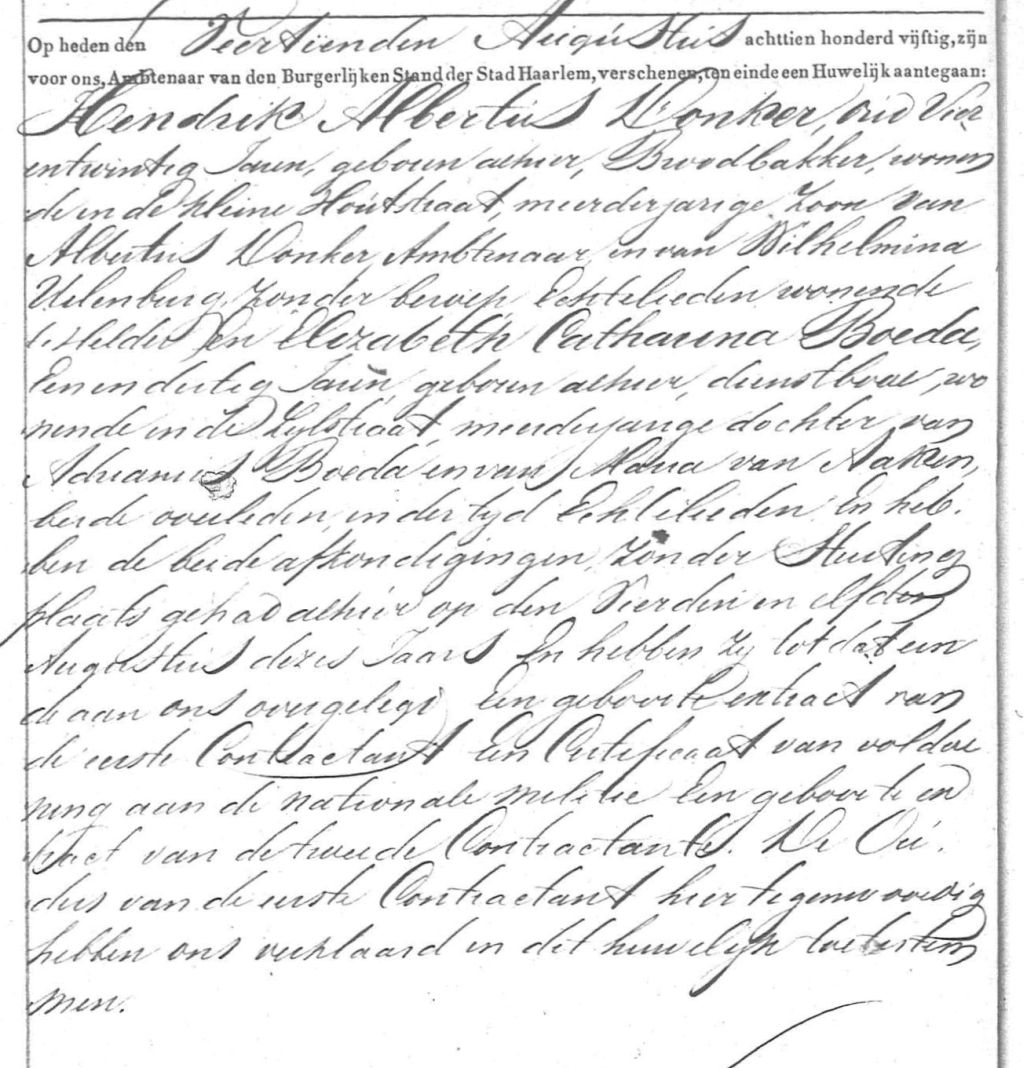 Op heden den Veertienden Augustus achttien honderd vijftig, zijn
voor ons, Ambtenaar van den Burgerlijken Stand der Stad Haarlem, verschenen, ten einde een Huwelijk aantegaan:
Hendrik Albertus Donker, oud Vier
entwintig Jaren, geboren alhier, Broodbakker, wonen
de in de kleine Houtstraat, meerderjarige Zoon van
Albertus Donker Ambtenaar, en van Wilhelmina
Uilenburg, zonder beroep, Echtelieden wonende
te Helder, en Elizabeth Catharina Boeda,
Een en dertig Jaren, geboren alhier, dienstbode, wo
nende in de Zylstraat, meerderjarige dochter van
Adrianus Boeda en van Maria van Aaken,
beide overleden, in der tyd Echtelieden. En heb.
ben de beide afkondigingen, zonder Stuiting
plaats gehad alhier op den Vierden en elfden
Augustus dezes Jaars. En hebben zy tot dat ein
de aan ons overgelegd Een geboorte extract van
de eerste Contractant Een Certificaat van voldoe
ning aan de nationale militie Een geboorte ex
tract van de tweede Contractante. De Ou.
ders van de eerste Contractant hier tegenwoordig
hebben ons verklaard in dit huwelyk toetestem
men.